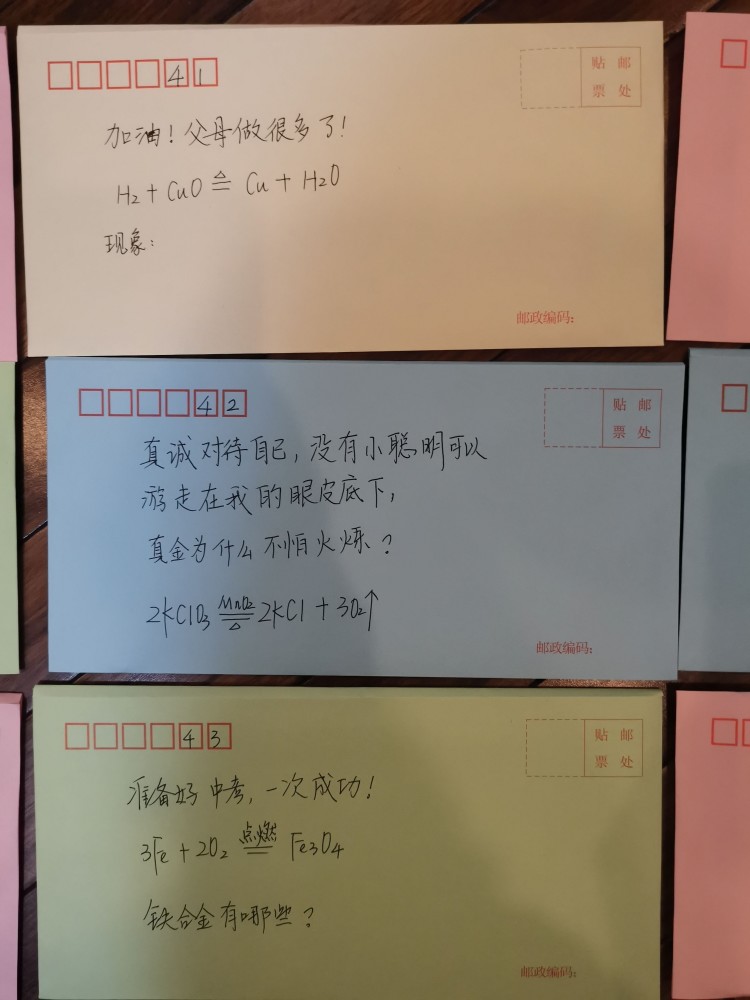 41
贴 邮
票 处
加油！父母做很多了！
H2 + CuO ≜ Cu + H2O
现象：
邮政编码：
42
贴 邮
票 处
真诚对待自己，没有小聪明可以
游走在我的眼皮底下，
真金为什么不怕火烁？
MnO2
2KClO3 ══ 2KCl + 3O2↑
△
邮政编码：
43
贴 邮
票 处
准备好中考，一次成功！
点燃
3Fe + 2O2 ══ Fe3O4
铁合金有哪些？
邮政编码：